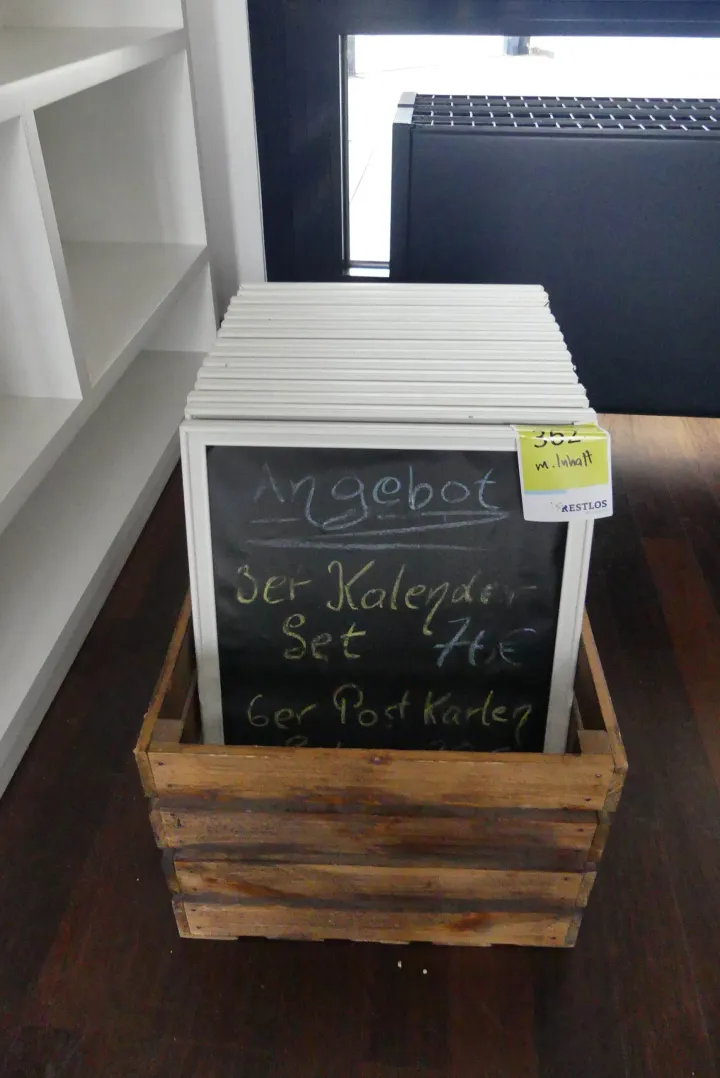 Angebot
3er Kalender
Set 76€
6er Post Karten
352
m. Inhalt
RESTLOS